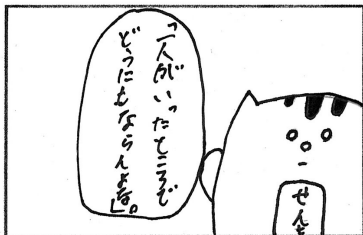 「一人がいったところで
どうにもならんよな」。
せんき